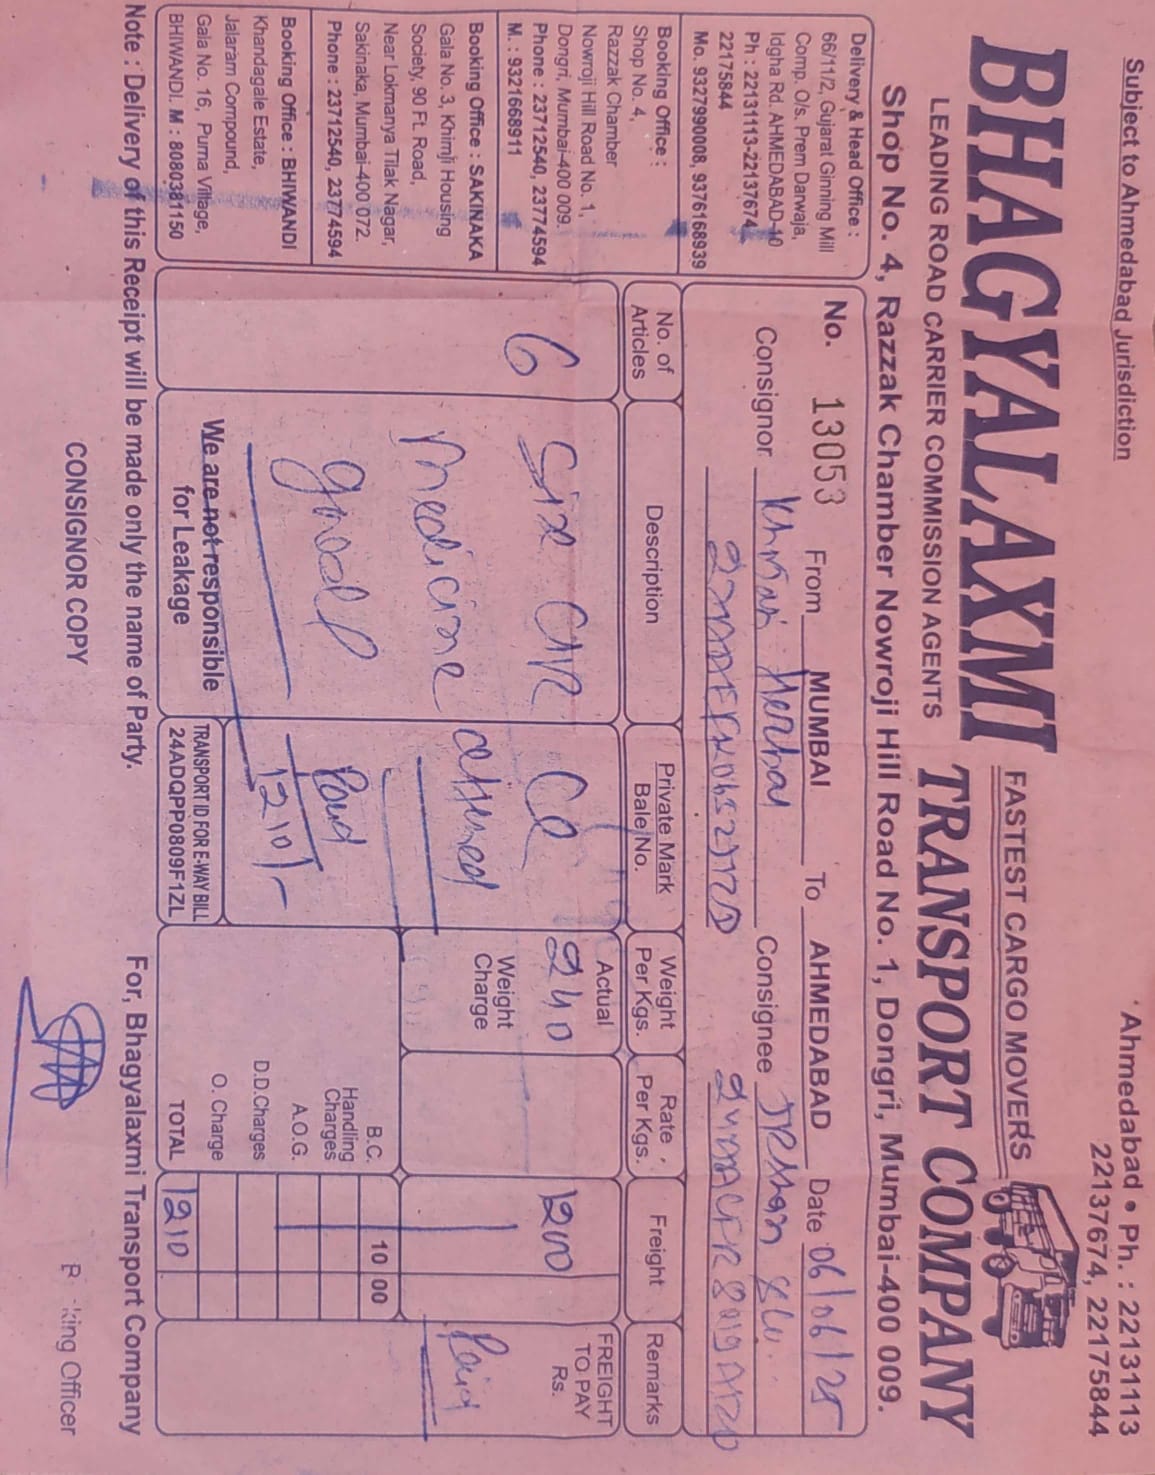 Subject to Ahmedabad Jurisdiction
Ahmedabad • Ph. : 22131113
22137674, 22175844
BHAGYALAXMI TRANSPORT COMPANY
FASTEST CARGO MOVERS
LEADING ROAD CARRIER COMMISSION AGENTS
Shop No. 4, Razzak Chamber Nowroji Hill Road No. 1, Dongri, Mumbai-400 009.
Delivery & Head Office :
66/11/2, Gujarat Ginning Mill
Comp. O/s. Prem Darwaja,
Idgha Rd. AHMEDABAD-10
Ph : 22131113-22137674
22175844
Mo. 9327990008, 9376168939
Booking Office :
Shop No. 4,
Razzak Chamber
Nowroji Hill Road No. 1,
Dongri, Mumbai-400 009.
Phone : 23712540, 23774594
M. : 9321668911
Booking Office : SAKINAKA
Gala No. 3, Khimji Housing
Society, 90 Ft. Road,
Near Lokmanya Tilak Nagar,
Sakinaka, Mumbai-400 072.
Phone : 23712540, 23774594
Booking Office : BHIWANDI
Khandagale Estate,
Jalaram Compound,
Gala No. 16, Purna Village,
BHIWANDI. M : 8080381150
No. 13053 From MUMBAI To AHMEDABAD Date 06/06/25
Consignor Consignee
No. of Articles
Description
Private Mark Bale No.
Weight Per Kgs.
Rate Per Kgs.
Freight
Remarks
6
Six
Medicine
Paid
1210/-
We are not responsible
for Leakage
TRANSPORT ID FOR E-WAY BILL
24ADQPP0809F1ZL
Actual
240
Weight
Charge
1200
FREIGHT
TO PAY
Rs.
Paid
B.C. 10 00
Handling
Charges
A.O.G.
D.D.Charges
O. Charge
TOTAL 1210
Note : Delivery of this Receipt will be made only the name of Party.
For, Bhagyalaxmi Transport Company
CONSIGNOR COPY
Officer